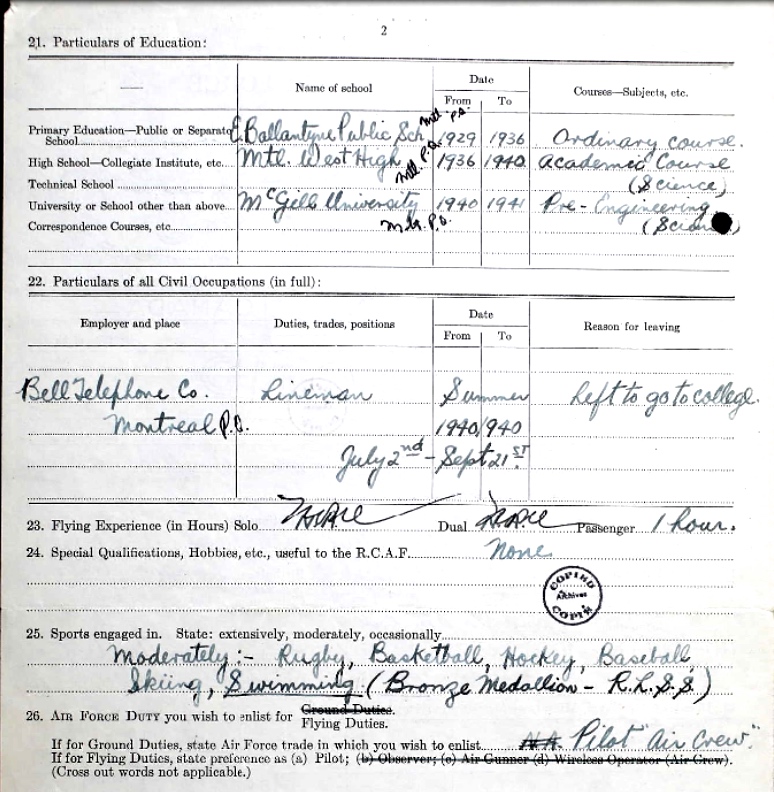 2
21. Particulars of Education:
Name of school Date Courses—Subjects, etc.
From To
Mtl. P.Q.
Primary Education—Public or Separate School E. Ballantyne Public Sch 1929 1936 Ordinary course.
High School—Collegiate Institute, etc. Mtl. West High Mtl. P.Q. 1936 1940 Academic Course
Technical School (Science)
University or School other than above McGill University 1940 1941 Pre-Engineering
Correspondence Courses, etc. Mtl. P.Q. (Science)
22. Particulars of all Civil Occupations (in full):
Employer and place Duties, trades, positions Date Reason for leaving
From To
Bell Telephone Co. Lineman Summer Left to go to college.
Montreal P.Q. 1940/940
July 2nd - Sept 21ST.
23. Flying Experience (in Hours) Solo None Dual None Passenger 1 hour.
24. Special Qualifications, Hobbies, etc., useful to the R.C.A.F. None
COPIED
Archives
COPIÉ
25. Sports engaged in. State: extensively, moderately, occasionally
Moderately:- Rugby, Basketball, Hockey, Baseball
Skiing, Swimming (Bronze Medallion - R.L.S.S.)
26. AIR FORCE DUTY you wish to enlist for Ground Duties.
Flying Duties.
If for Ground Duties, state Air Force trade in which you wish to enlist N.A. Pilot "Air Crew."
If for Flying Duties, state preference as (a) Pilot; (b) Observer; (c) Air Gunner (d) Wireless Operator (Air Crew).
(Cross out words not applicable.)